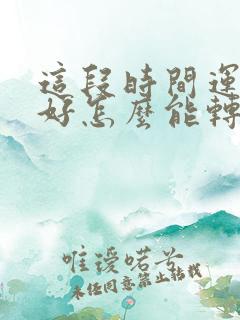 這段時間運
好怎麼能轉
唯援喏芥
未经同意禁止转载